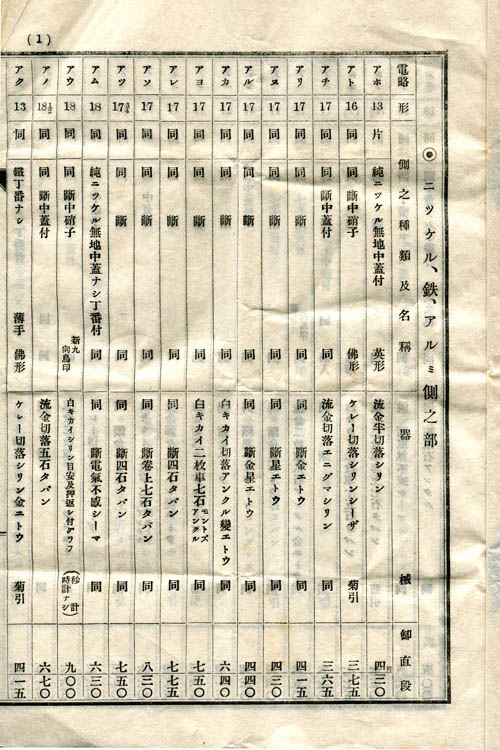 (1)
◉ニツケル、鉄、アルミ側之部
電略 形 側之種類及名稱 器械 卸直段
アホ 13 片 純ニツケル無地中蓋付 英形 流金半切落シリン 同 四円三〇
アト 16 同 同 斷中硝子 佛形 ケレー切落シリンシーザ 菊引 三七五
アチ 17 同 同 斷中蓋付 同 流金切落エニグマシリン 同 三六五
アリ 17 同 同 斷 同 同 斷金エトウ 同 四一五
アヌ 17 同 同 斷 同 同 斷星エトウ 同 四三〇
アル 17 同 同 斷 同 同 斷金星エトウ 同 四四〇
アカ 17 同 同 斷 同 白キカイ切落アンクル變エトウ 同 六四〇
アヨ 17 同 同 斷 同 白キカイ二枚車七石モントズアンクル 同 七五〇
アレ 17 同 同 斷 同 同 斷四石タバン 同 七七五
アソ 17 同 同 斷 同 同 斷卷上七石タバン 同 八三〇
アツ 17¾ 同 同 斷 同 同 斷四石タバン 同 七五〇
アム 18 同 純ニツケル無地中蓋ナシ丁番付 同 同 斷電氣不感シーマ 同 六三〇
アウ 18 同 同 斷中硝子 新九向鳥印 白キカイシリン目安及押返シ付グラフ 九〇〇
アノ 18½ 同 同 斷中蓋付 同 流金切落五石タバン 同 六七〇
アク 13 同 鐵丁番ナシ 薄手 佛形 ケレー切落シリン金ニトウ 菊引 四一五